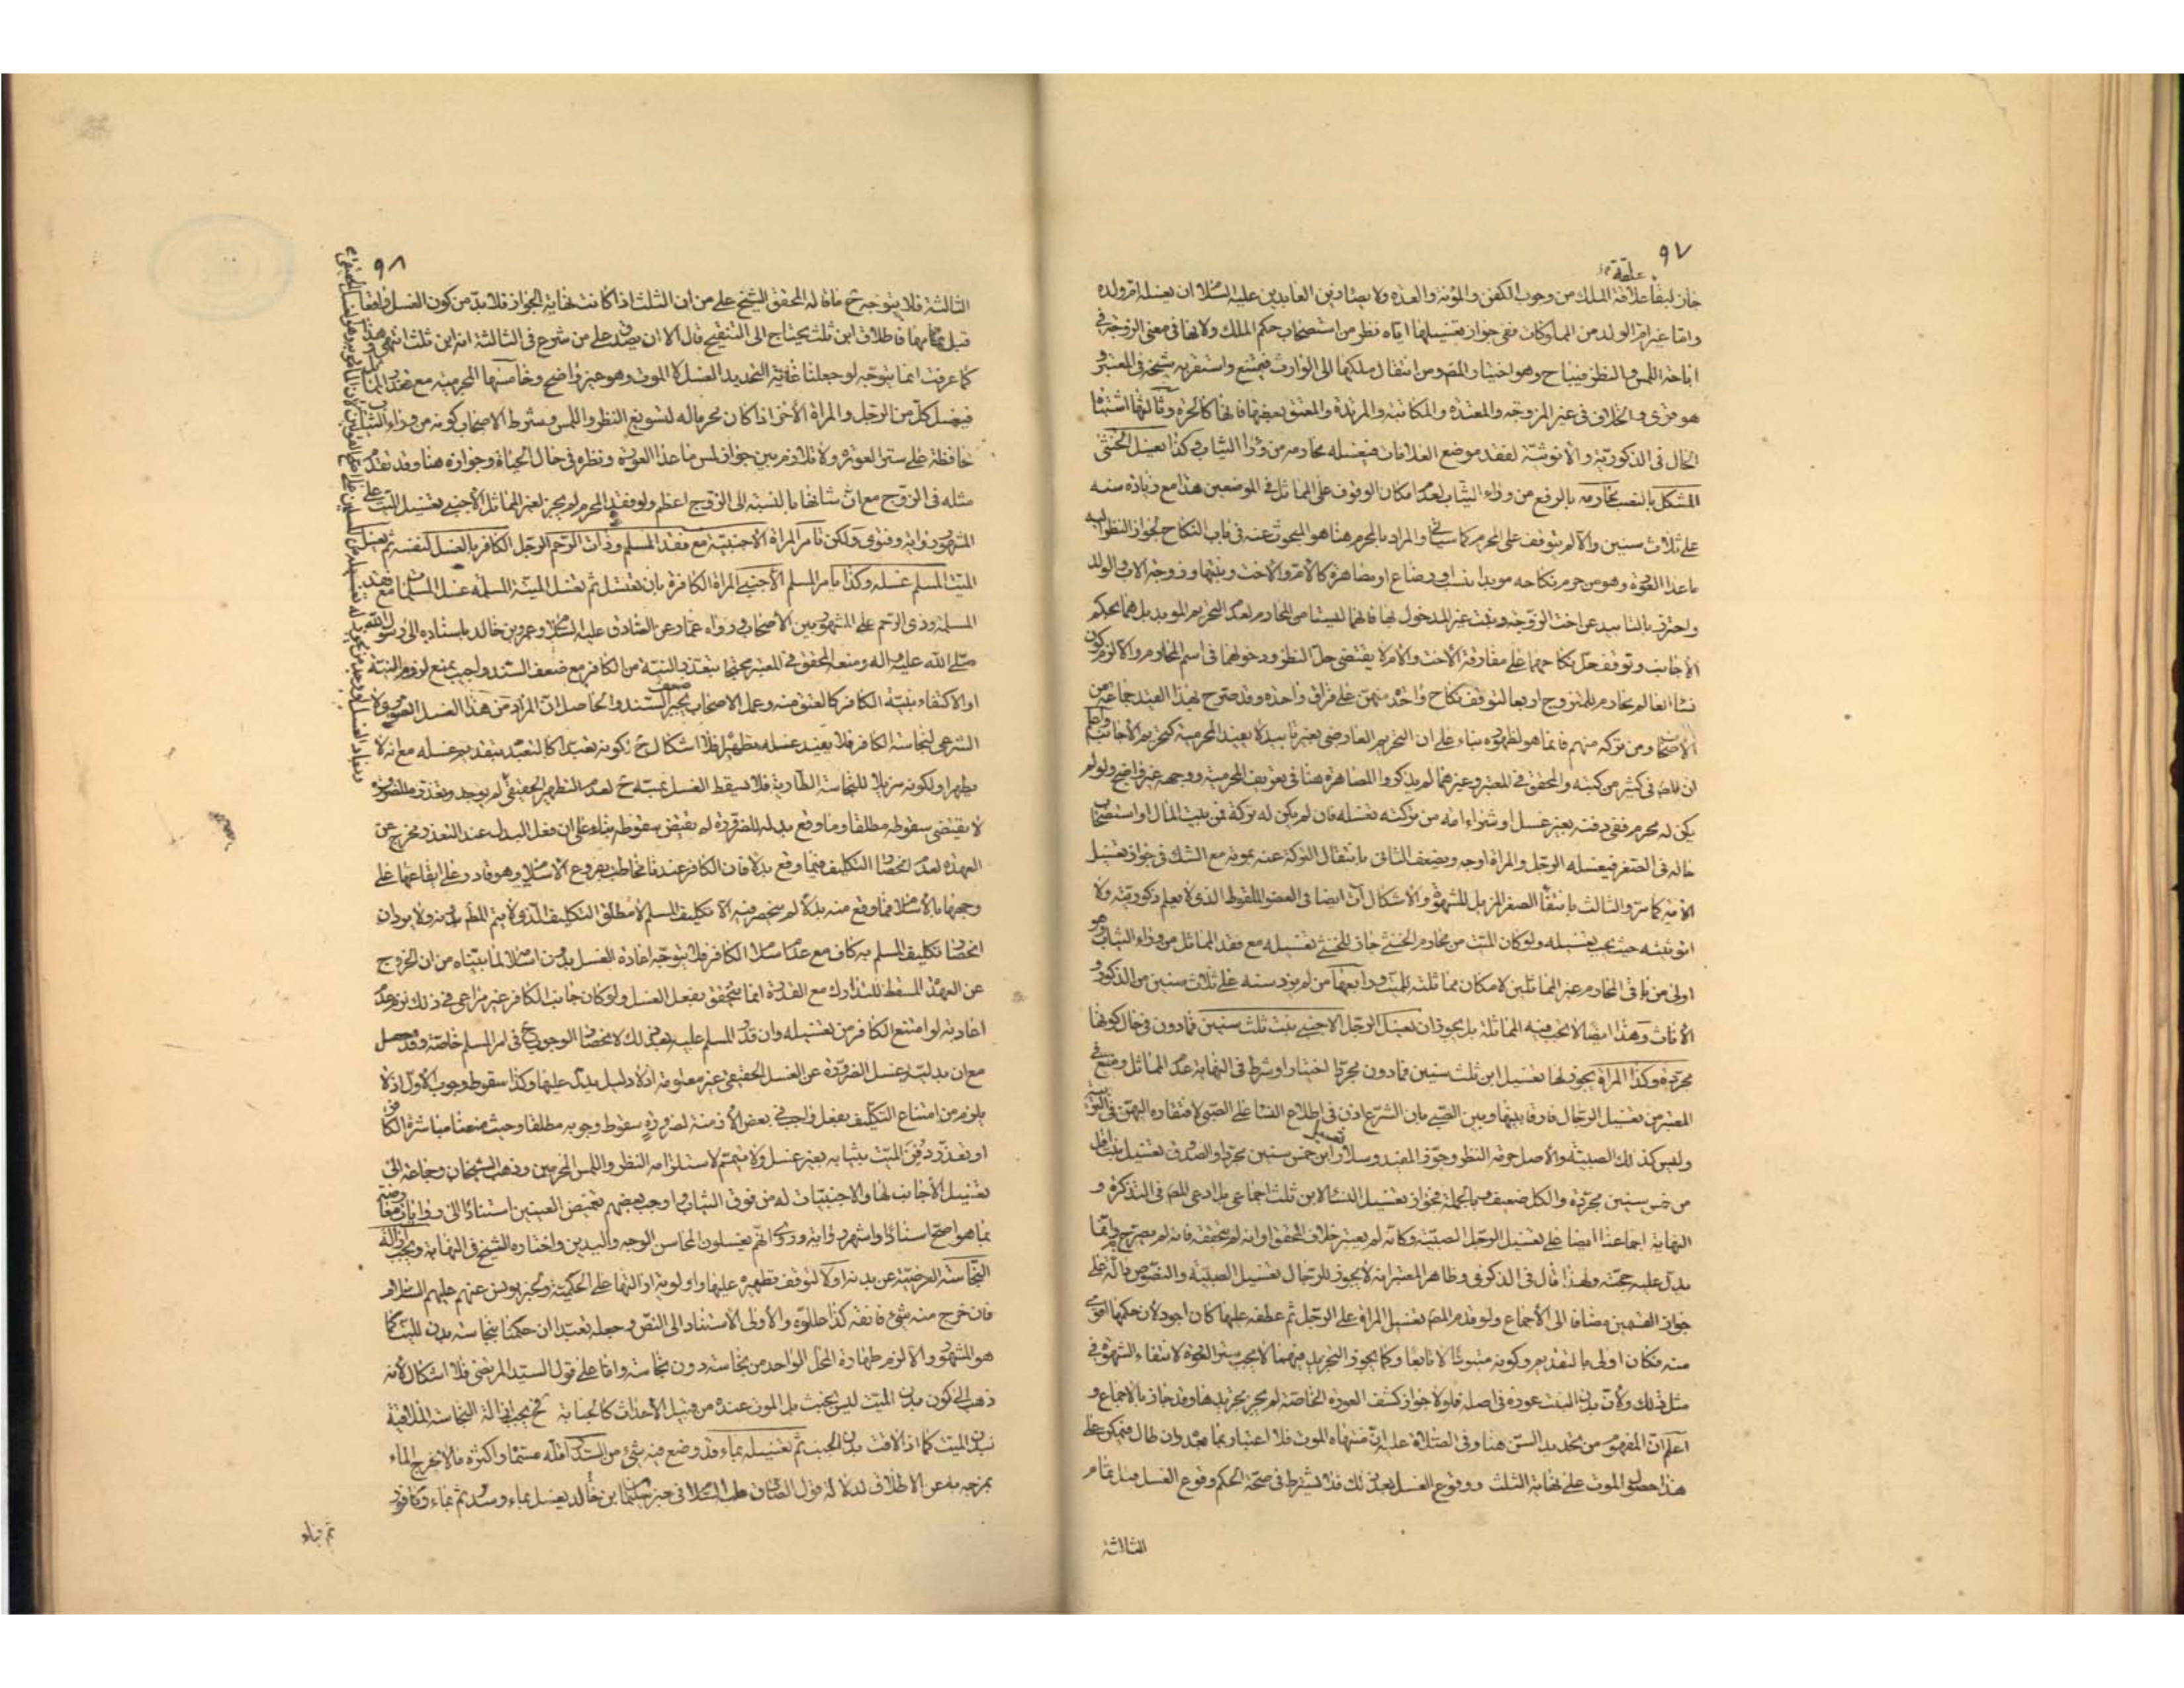 ٩٧
علقة
جاز لبقاء علاقة الملك من وجوب الكفن والمؤنة والعدة ولايصاء زين العابدين عليه السلام ان يغسله ام ولده
واما غير ام الولد من المملوكات ففي جواز تغسيلها اياه نظر من استصحاب حكم الملك ولانها في معنى الزوجة في
اباحة اللمس والنظر فيباح وهو اختيار المص ومن انتقال ملكها الى الوارث فيمتنع واستقر به شيخه في المعتبر و
هو قوى والخلاف في غير المزوجة والمعتدة والمكاتبة والمرتدة والمعتق بعضها فانها كالحرة وثالثها اشتباه
الحال في الذكورية والانوثية لفقد موضع العلامات فيغسله محارمه من وراء الثياب وكذا يغسل الخنثى
المشكل بالنصب محارمه بالرفع من وراء الثياب لعدم امكان الوقوف على المماثل في الموضعين هذا مع زيادة سنه
على ثلاث سنين والا لم يتوقف على المحرم كما سياتي والمراد بالمحرم هنا هو المبحوث عنه في باب النكاح لجواز النظر اليه
ما عدا العورة وهو من حرم نكاحه مؤبدا بنسب او رضاع او مصاهرة كالام والاخت وبنتها وزوجة الاب والولد
واحترز بالتابيد عن اخت الزوجة وبنت غير المدخول بها فانهما ليستا من المحارم لعدم التحريم المؤبد بل هما بحكم
الاجانب وتوقف حل نكاحهما على مفارقة الاخت والام لا يقتضي حل النظر ودخولهما في اسم المحارم والا لزم كون
نساء العالم محارم للمتزوج اربعا لتوقف نكاح واحدة منهن على فراق واحدة وقد صرح بهذا القيد جماعة من
الاصحاب ومن تركه منهم فانما هو لظهوره بناء على ان التحريم العارضي بغير تابيد لا يفيد المحرمية كتحريم الاجانب واعلم
ان المص في كثير من كتبه والمحقق في المعتبر وغيرهما لم يذكروا المصاهرة هنا في تعريف المحرمية ووجهه غير واضح ولو لم
يكن له محرم ففي دفنه بغير غسل او شراء امة من تركته تغسله فان لم يكن له تركة فمن بيت المال او استصحاب
حاله في الصغر فيغسله الرجل والمراة اوجه ويضعف الثاني بانتقال التركة عنه بموته مع الشك في جواز تغسيل
الامة كما مر والثالث بانتفاء الصغر المزيل للشهوة والاشكال آت ايضا في العضو الملقوط الذي لا يعلم ذكوريته ولا
انوثيته حيث يجب تغسيله ولو كان الميت من محارم الخنثى جاز للخنثى تغسيله مع فقد المماثل من وراء الثياب وهو
اولى من باقي المحارم غير المماثلين لامكان مماثلته للميت ورابعها من لم يزد سنه على ثلاث سنين من الذكور و
الاناث وهذا ايضا لا تجب فيه المماثلة بل يجوز ان يغسل الرجل الاجنبي بنت ثلث سنين فمادون في حال كونها
مجردة وكذا المراة يجوز لها تغسيل ابن ثلث سنين فمادون مجردا اختيارا وشرط في النهاية عدم المماثل ومنع في
المعتبر من تغسيل الرجال فارقا بينها وبين الصبي بان الشرع اذن في اطلاع النساء على الصبي لافتقاره اليهن في التربية
وليس كذلك الصبية والاصل حرمة النظر وجوز المفيد وسلار تغسيل ابن خمس سنين مجردا والصدوق تغسيل بنت اقل
من خمس سنين مجردة والكل ضعيف وبالجملة فجواز تغسيل النساء لابن ثلث اجماعي بل ادعى المص في التذكرة و
النهاية اجماعنا ايضا على تغسيل الرجل الصبية وكانه لم يعتبر خلاف المحقق او انه لم يتحققه فانه لم يصرح به وانما
يدل عليه حجته ولهذا قال في الذكرى وظاهر المعتبر انه لا يجوز للرجال تغسيل الصبية والنصوص دالة على
جواز القسمين مضافا الى الاجماع ولو قدم المص تغسيل المراة على الرجل ثم عطفه عليها كان اجود لان حكمها اقوى
منه فكان اولى بالتقديم وكونه متبوعا لا تابعا وكما يجوز التجريد فيهما لا يجب ستر العورة لانتفاء الشهوة في
مثل ذلك ولان بدن البنت عورة في اصله فلولا جواز كشف العورة الخاصة لم يجز تجريدها وقد جاز بالاجماع و
اعلم ان المفهوم من تحديد السن هنا وفي الصلاة عليه ان منتهاه الموت فلا اعتبار بما بعده وان طال فيمكن على
هذا حصول الموت على نهاية الثلث ووقوع الغسل بعد ذلك فلا يشترط في صحة الحكم وقوع الغسل قبل تمام
الثالثة
٩٨
الثالثة فلا يتوجه ح ما قاله المحقق الشيخ على من ان الثلث اذا كانت نهاية الجواز فلابد من كون الغسل واقعا
قبل تمامها فاطلاق ابن ثلث يحتاج الى التنقيح قال الا ان يصدق على من شرع في الثالثة انه ابن ثلث انتهى وهذا
كما عرفت انما يتوجه لو جعلنا غاية التحديد الغسل لا الموت وهو غير واضح وخامسها المحرمية مع تعذر المماثل
فيغسل كل من الرجل والمراة الاخر اذا كان محرما له لتسويغ النظر واللمس وشرط الاصحاب كونه من وراء الثياب
محافظة على ستر العورة ولا تلازم بين جواز لمس ما عدا العورة ونظره في حال الحياة وجوازه هنا وقد تقدم
مثله في الزوج مع ان شانها بالنسبة الى الزوج اعظم ولو فقد المحرم لم يجز لغير المماثل الاجنبي تغسيل الميت على
المشهور رواية وفتوى ولكن تامر المراة الاجنبية مع فقد المسلم وذات الرحم الرجل الكافر بالغسل لنفسه ثم يغسل
الميت المسلم غسله وكذا يامر المسلم الاجنبي المراة الكافرة بان تغتسل ثم تغسل الميتة المسلمة غسل المسلمات مع فقد
المسلمة وذي الرحم على المشهور بين الاصحاب ورواه عمار عن الصادق عليه السلام وعمرو بن خالد باسناده الى رسول الله
صلى الله عليه واله ومنعه المحقق في المعتبر محتجا بتعذر النية من الكافر مع ضعف السند واجيب بمنع لزوم النية
او الاكتفاء بنية الكافر كالعتق منه وعمل الاصحاب يجبر ضعف السند والحاصل ان المراد من هذا الغسل الصوري لا
الشرعي لنجاسة الكافر فلا يفيد غسله تطهيرا فلا اشكال ح لكونه تعبدا كالتعبد بتقديم غسله مع انه لا
يطهر او لكونه مزيلا للنجاسة الطارية فلا يسقط الغسل بمسه ح لعدم التطهير الحقيقي
لا يقتضي سقوطه مطلقا وما وقع بدله للضرورة لم يقتض سقوطه بناء على ان فعل البدل عند التعذر مخرج عن
العهدة لعدم انحصار التكليف فيما وقع بدلا فان الكافر عندنا مخاطب بفروع الاسلام وهو قادر على ايقاعها على
وجهها بالاسلام فما وقع منه بدلا لم ينحصر فيه الا تكليف المسلم لا مطلق التكليف الذي لا يتم المطلوب بدونه ولا يرد ان
انحصار تكليف المسلم به كاف مع عدم اسلام الكافر فلا يتوجه اعادة الغسل بدون اسلامه لما بيناه من ان الخروج
عن العهدة المسقط للتدارك مع القدرة انما يتحقق بفعل الغسل ولو كان جانب الكافر غير مراعى في ذلك لزم عدم
اعادته لو امتنع الكافر من تغسيله وان قدر المسلم عليه بعد ذلك لانحصار الوجوب ح في امر المسلم خاصة وقد حصل
مع ان بدلية غسل الضرورة عن الغسل الحقيقي غير معلومة اذ لا دليل يدل عليها وكذا سقوط وجوب الاول اذ لا
يلزم من امتناع التكليف بفعل واجب في بعض الازمنة لضرورة سقوط وجوبه مطلقا وحيث منعنا مباشرة الكافر
او تعذر دفن الميت بثيابه بغير غسل ولا تيمم لاستلزامه النظر واللمس المحرمين وذهب الشيخان وجماعة الى
تغسيل الاجانب لها والاجنبيات له من فوق الثياب واوجب بعضهم تغميض العينين استنادا الى روايات معارضة
بما هو اصح اسنادا واشهر رواية وروي انهم يغسلون المحاسن الوجه واليدين واختاره الشيخ في النهاية ويجب ازالة
النجاسة العرضية عن بدنه اولا لتوقف تطهيره عليها واولوية ازالتها على الحكمية ولخبر يونس عنهم عليهم السلام
فان خرج منه شئ فانقه كذا عللوه والاولى الاستناد الى النص وجعله تعبدا ان حكمنا بنجاسة بدن الميت كما
هو المشهور والا لزم طهارة المحل الواحد من نجاسة دون نجاسة واما على قول السيد المرتضى فلا اشكال لانه
ذهب الى كون بدن الميت ليس بخبث بل الموت عنده من قبيل الاحداث كالجنابة فح يجب ازالة النجاسة الملاقية
لبدن الميت كما اذا لاقت بدن الجنب ثم تغسيله بماء قد وضع فيه شئ من السدر اقله مسماه واكثره ما لا يخرج الماء
بمزجه به عن الاطلاق لدلالة قول الصادق عليه السلام في خبر سليمان بن خالد يغسل بماء وسدر ثم بماء وكافور
ثم بماء